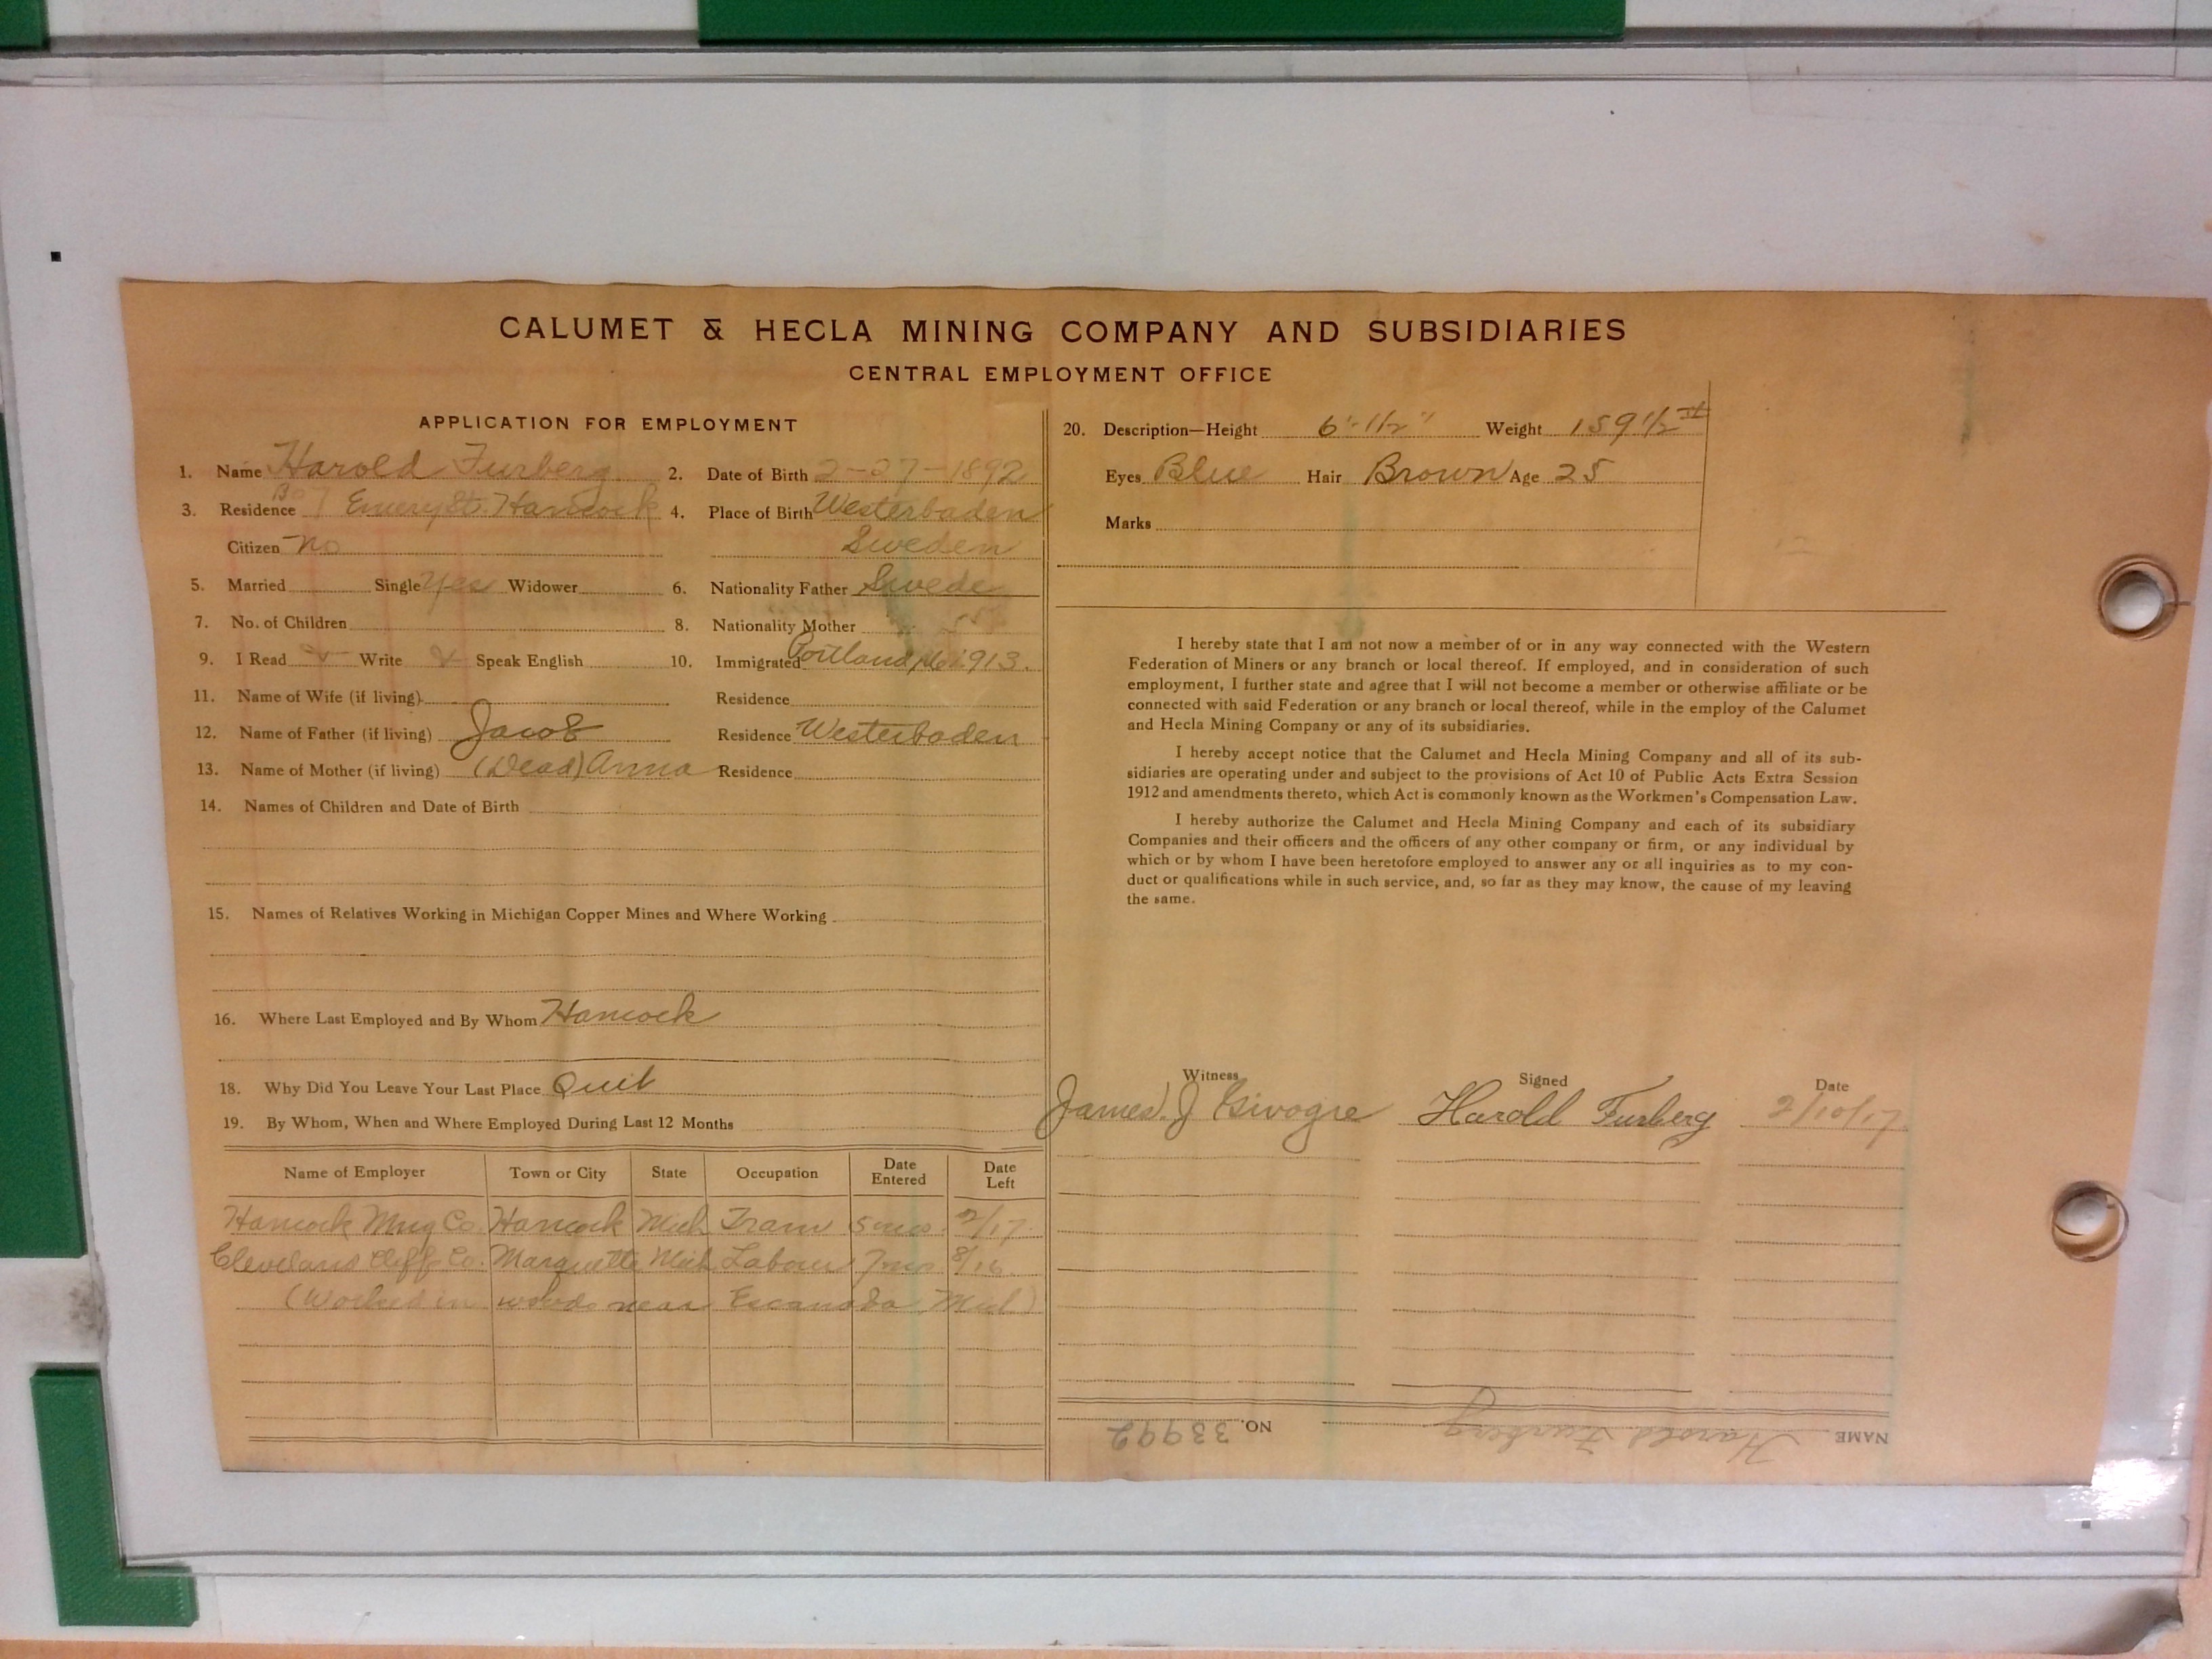 CALUMET & HECLA MINING COMPANY AND SUBSIDIARIES
CENTRAL EMPLOYMENT OFFICE
APPLICATION FOR EMPLOYMENT
1. Name Harold Furberg 2. Date of Birth 2-27-1892
3. Residence Emery St. Hancock 4. Place of Birth Westerboden
Citizen no Sweden
5. Married Single Yes Widower 6. Nationality Father Swede
7. No. of Children 8. Nationality Mother
9. I Read ✓ Write ✓ Speak English 10. Immigrated Portland, 1913.
11. Name of Wife (if living) Residence
12. Name of Father (if living) Jacob Residence Westerboden
13. Name of Mother (if living) (Dead) Anna Residence
14. Names of Children and Date of Birth
15. Names of Relatives Working in Michigan Copper Mines and Where Working
16. Where Last Employed and By Whom Hancock
18. Why Did You Leave Your Last Place Quit
19. By Whom, When and Where Employed During Last 12 Months
Name of Employer Town or City State Occupation Date Entered Date Left
Hancock Mng Co. Hancock Mich Tram 5 mos. 2/17.
Cleveland Cliff Co. Marquette Mich Labour 7 mos 8/16
(Worked in woods near Escanaba Mich)
20. Description—Height 6'-1½" Weight 159½
Eyes Blue Hair Brown Age 25
Marks
I hereby state that I am not now a member of or in any way connected with the Western
Federation of Miners or any branch or local thereof. If employed, and in consideration of such
employment, I further state and agree that I will not become a member or otherwise affiliate or be
connected with said Federation or any branch or local thereof, while in the employ of the Calumet
and Hecla Mining Company or any of its subsidiaries.
I hereby accept notice that the Calumet and Hecla Mining Company and all of its sub-
sidiaries are operating under and subject to the provisions of Act 10 of Public Acts Extra Session
1912 and amendments thereto, which Act is commonly known as the Workmen's Compensation Law.
I hereby authorize the Calumet and Hecla Mining Company and each of its subsidiary
Companies and their officers and the officers of any other company or firm, or any individual by
which or by whom I have been heretofore employed to answer any or all inquiries as to my con-
duct or qualifications while in such service, and, so far as they may know, the cause of my leaving
the same.
Witness Signed Date
James J Harold Furberg 2/10/17
NAME Harold Furberg NO. 33992